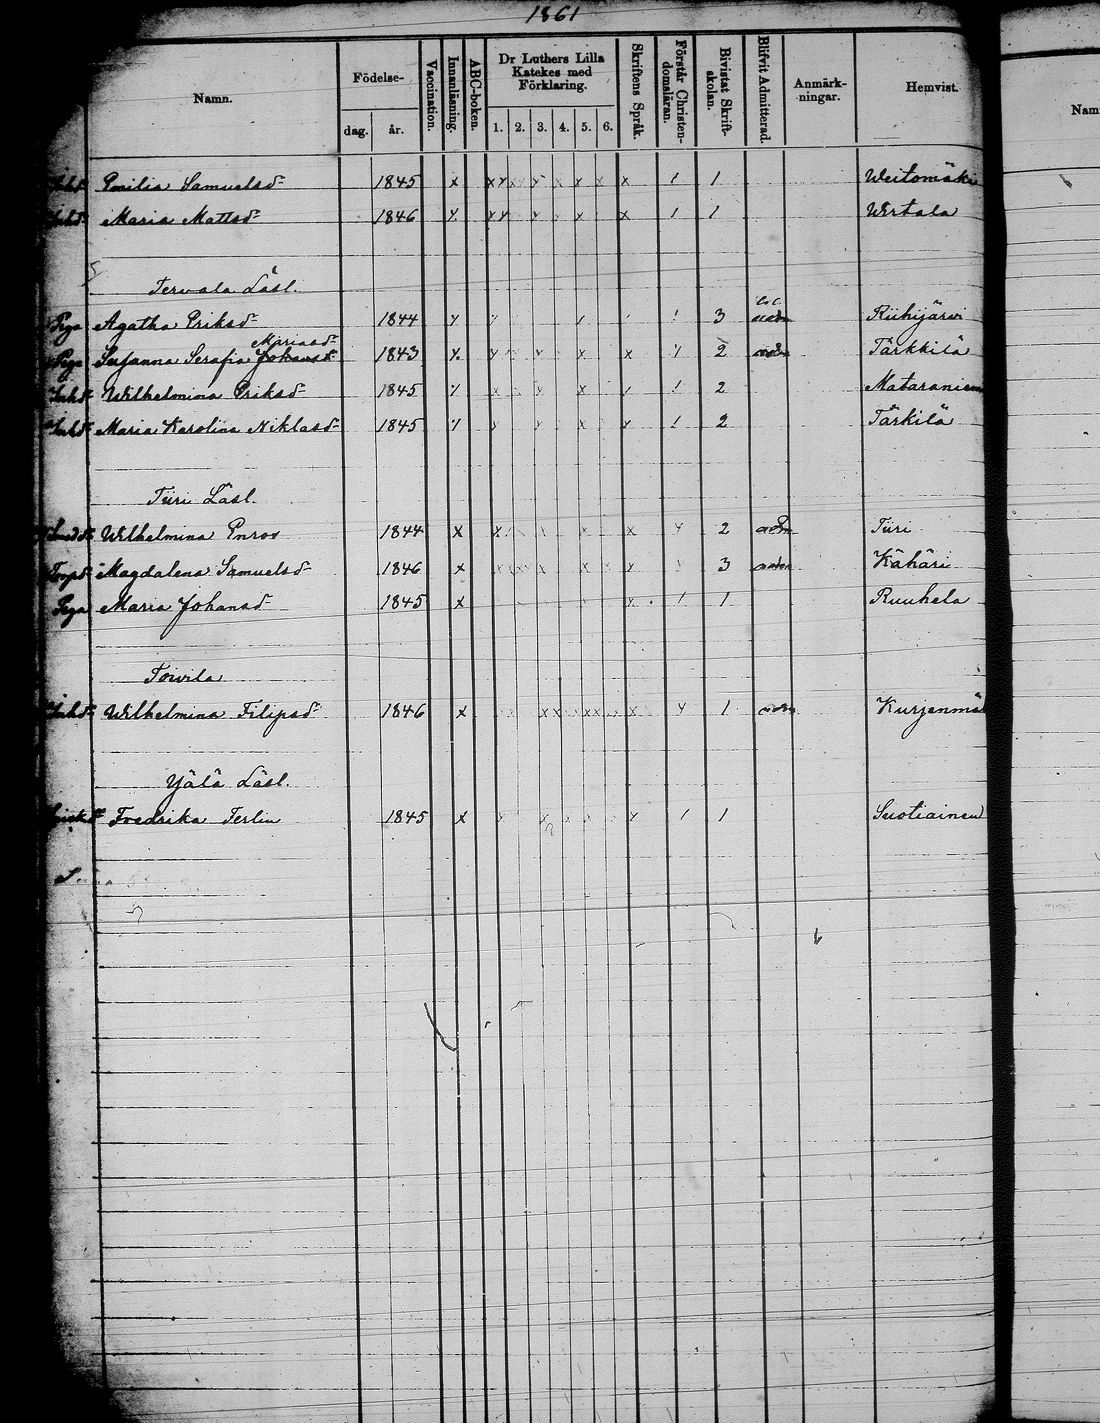 1861
Namn. Födelse- dag. år. Vaccination. Innanläsning. ABC-boken. Dr Luthers Lilla Katekes med Förklaring. 1. 2. 3. 4. 5. 6. Skriftens Språk. Förstår Christen-domsläran. Bivistat Skrift-skolan. Blifvit Admitterad. Anmärk-ningar. Hemvist.
Nam
Inhd Emilia Samuelsd 1845 x x x x x x x x x 1 1 Weitomäki
Inhd Maria Mattsd 1846 x x x x x x 1 1 Wirtala
Tervala Läsl.
Piga Agatha Eriksd 1844 3 adm Riihijärvi
Mariasd
Piga Susanna Serafia Johansd 1843 x 2 adm Tärkkilä
Inhd Wilhelmina Eriksd 1845 2
Inhd Maria Karolina Niklasd 1845 2 Tärkilä
Tiiri Läsl.
Wilhelmina Enros 1844 x x x 2 adm Tiiri
Torpd Magdalena Samuelsd 1846 x 3 adm Kähäri
Piga Maria Johansd 1845 x 1 1 Ruuhela
Toivila
Inhd Wilhelmina Filipsd 1846 x x x x x x 1 adm Kurjenmä
Yälä Läsl.
Fredrika Terlin 1845 x 1 1 Suotiainen